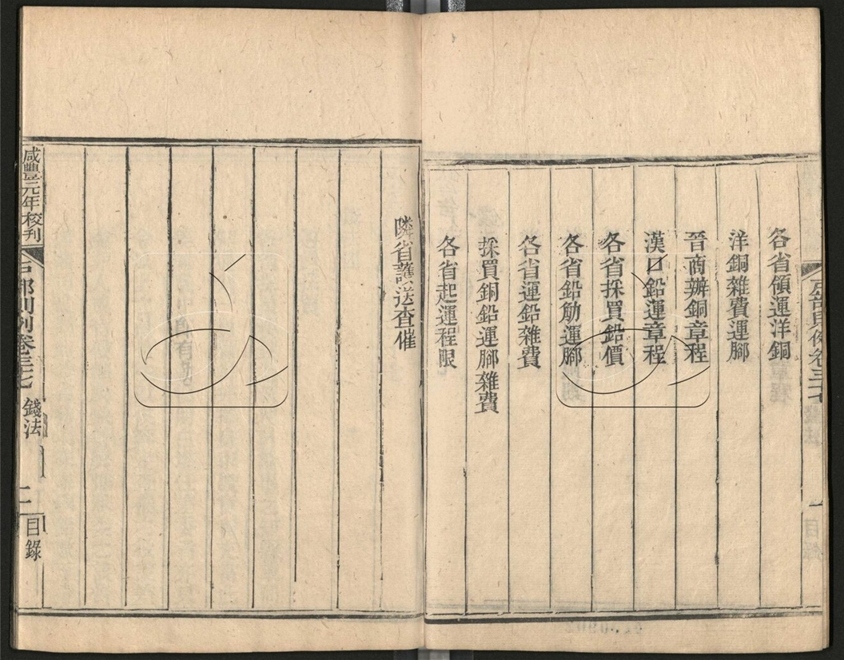 各省領運洋銅
洋銅雜費運腳
晉商辦銅章程
漢口鉛運章程
各省採買鉛價
各省鉛觔運腳
各省運鉛雜費
採買銅鉛運腳雜費
各省起運程限
隣省護送查催
咸豐元年校刊
戶部則例卷三七
錢法
二
目錄